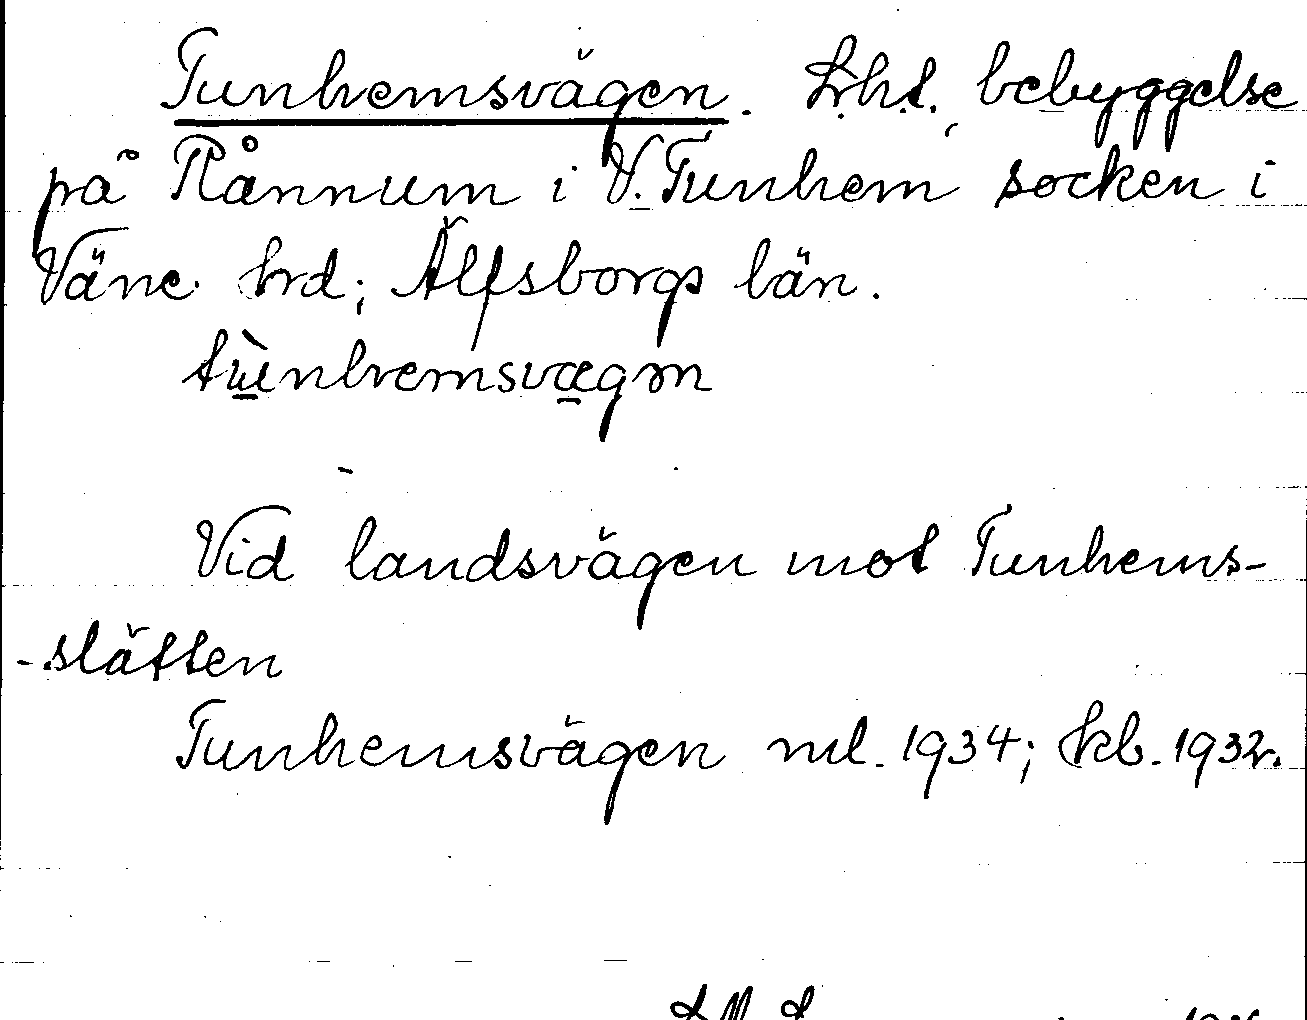 Tunhemsvägen. Lht., bebyggelse
på Rånnum i V. Tunhem socken i
Väne hrd; Älfsborgs län.
tùnhemsvægən
Vid landsvägen mot Tunhems-
-slätten
Tunhemsvägen ml. 1934; kb. 1932.